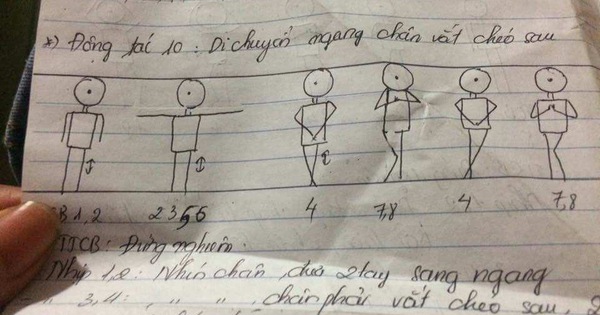 *) Động tác 10: Di chuyển ngang chân vắt chéo sau
CB 1,2 2 3 5,6 4 7,8 4 7,8
TTCB: Đứng nghiêm.
Nhịp 1,2: Nhún chân, đưa 2 tay sang ngang
- " 3,4: " " , chân phải vắt chéo sau, 2